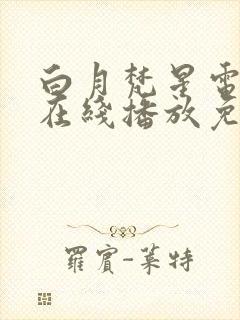 白月梵星電
在綫播放免
羅賓-萊特